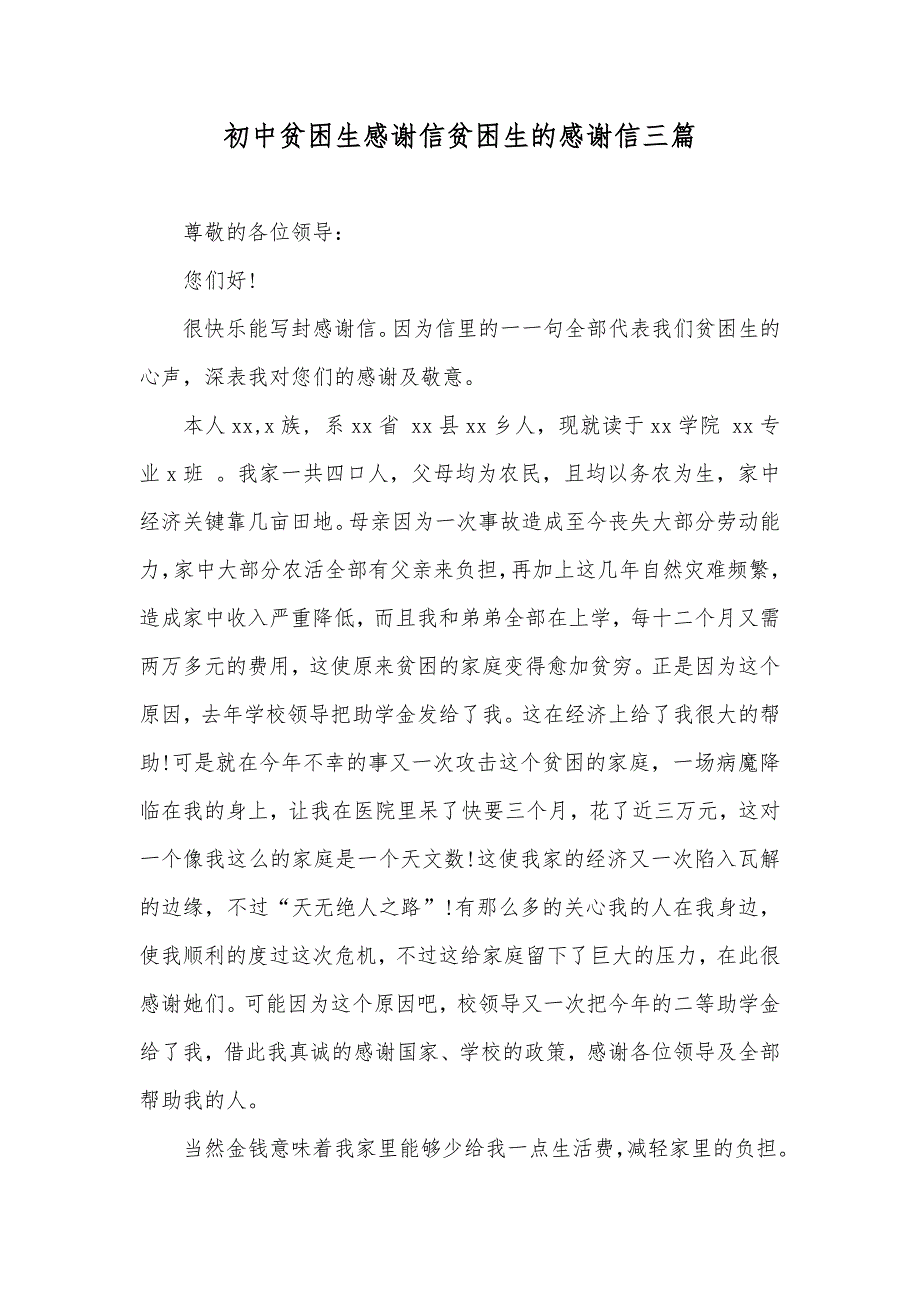 初中贫困生感谢信贫困生的感谢信三篇
尊敬的各位领导:
您们好!
很快乐能写封感谢信。因为信里的一一句全部代表我们贫困生的
心声，深表我对您们的感谢及敬意。
本人xx,x族, 系xx省 xx县xx乡人，现就读于xx学院 xx专
业x班 。我家一共四口人，父母均为农民，且均以务农为生，家中
经济关键靠几亩田地。母亲因为一次事故造成至今丧失大部分劳动能
力，家中大部分农活全部有父亲来负担，再加上这几年自然灾难频繁，
造成家中收入严重降低，而且我和弟弟全部在上学，每十二个月又需
两万多元的费用，这使原来贫困的家庭变得愈加贫穷。正是因为这个
原因，去年学校领导把助学金发给了我。这在经济上给了我很大的帮
助!可是就在今年不幸的事又一次攻击这个贫困的家庭，一场病魔降
临在我的身上，让我在医院里呆了快要三个月，花了近三万元，这对
一个像我这么的家庭是一个天文数!这使我家的经济又一次陷入瓦解
的边缘，不过“天无绝人之路”!有那么多的关心我的人在我身边，
使我顺利的度过这次危机，不过这给家庭留下了巨大的压力，在此很
感谢她们。可能因为这个原因吧，校领导又一次把今年的二等助学金
给了我，借此我真诚的感谢国家、学校的政策，感谢各位领导及全部
帮助我的人。
当然金钱意味着我家里能够少给我一点生活费，减轻家里的负担。